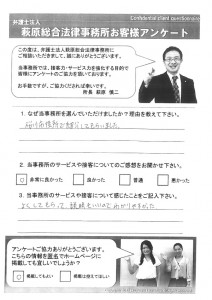 Confidential client questionnaire
弁護士法人
萩原総合法律事務所お客様アンケート
この度は、弁護士法人萩原総合法律事務所に
ご相談いただきまして、誠にありがとうございます。
当事務所では、接客力・サービス力を強化する目的で
皆様にアンケートのご協力を頂いております。
お手数ですが、ご協力くだされば幸いです。
所長 萩原 慎二
1. なぜ当事務所を選んでいただけましたか？理由を教えて下さい。
2. 当事務所のサービスや接客についてのご感想をお聞かせ下さい。
○ 非常に良かった 良かった 普通 悪かった
3. 当事務所のサービスや接客について感じたことをご記入下さい。
アンケートご協力ありがとうございます。
こちらの情報を匿名でホームページに
掲載しても宜しいでしょうか？
○ 掲載してもよい 掲載は控えてほしい